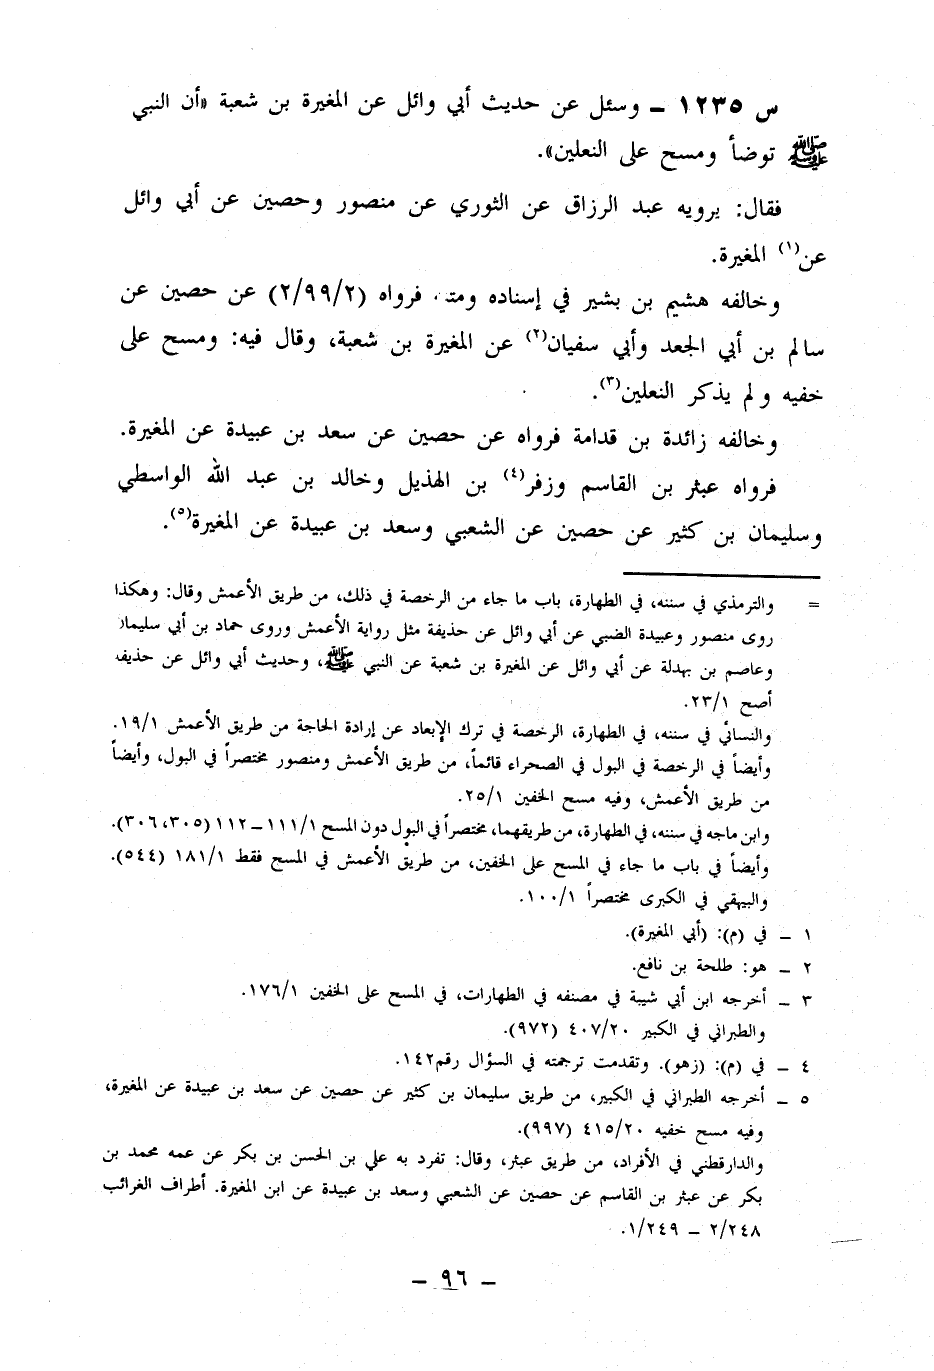 س ١٢٣٥ ـ وسئل عن حديث أبي وائل عن المغيرة بن شعبة «أن النبي
ﷺ توضأ ومسح على النعلين».
فقال: يرويه عبد الرزاق عن الثوري عن منصور وحصين عن أبي وائل
عن(١) المغيرة.
وخالفه هشيم بن بشير في إسناده فرواه (٢/٩٩/٢) عن حصين عن
سالم بن أبي الجعد وأبي سفيان(٢) عن المغيرة بن شعبة، وقال فيه: ومسح على
خفيه ولم يذكر النعلين(٣).
وخالفه زائدة بن قدامة فرواه عن حصين عن سعد بن عبيدة عن المغيرة.
فرواه عبثر بن القاسم وزفر(٤) بن الهذيل وخالد بن عبد الله الواسطي
وسليمان بن كثير عن حصين عن الشعبي وسعد بن عبيدة عن المغيرة(٥).
= والترمذي في سننه، في الطهارة، باب ما جاء من الرخصة في ذلك، من طريق الأعمش وقال: وهكذا
روى منصور وعبيدة الضبي عن أبي وائل عن حذيفة مثل رواية الأعمش وروى حماد بن أبي سليمان
وعاصم بن بهدلة عن أبي وائل عن المغيرة بن شعبة عن النبي ﷺ، وحديث أبي وائل عن حذيفة
أصح ٢٣/١.
والنسائي في سننه، في الطهارة، الرخصة في ترك الإبعاد عن إرادة الحاجة من طريق الأعمش ١٩/١.
وأيضاً في الرخصة في البول في الصحراء قائماً، من طريق الأعمش ومنصور مختصراً في البول، وأيضاً
من طريق الأعمش، وفيه مسح الخفين ٢٥/١.
وابن ماجه في سننه، في الطهارة، من طريقهما، مختصراً في البول دون المسح ١١١/١ـ١١٢ (٣٠٥، ٣٠٦).
وأيضاً في باب ما جاء في المسح على الخفين، من طريق الأعمش في المسح فقط ١٨١/١ (٥٤٤).
والبيهقي في الكبرى مختصراً ١٠٠/١.
١ ـ في (م): (أبي المغيرة).
٢ ـ هو: طلحة بن نافع.
٣ ـ أخرجه ابن أبي شيبة في مصنفه في الطهارات، في المسح على الخفين ١٧٦/١.
والطبراني في الكبير ٤٠٧/٢٠ (٩٧٢).
٤ ـ في (م): (زهو). وتقدمت ترجمته في السؤال رقم١٤٢.
٥ ـ أخرجه الطبراني في الكبير، من طريق سليمان بن كثير عن حصين عن سعد بن عبيدة عن المغيرة،
وفيه مسح خفيه ٤١٥/٢٠ (٩٩٧).
والدارقطني في الأفراد، من طريق عبثر، وقال: تفرد به علي بن الحسن بن بكر عن عمه محمد بن
بكر عن عبثر بن القاسم عن حصين عن الشعبي وسعد بن عبيدة عن ابن المغيرة. أطراف الغرائب
٢/٢٤٨ ـ ١/٢٤٩.
ـ ٩٦ ـ